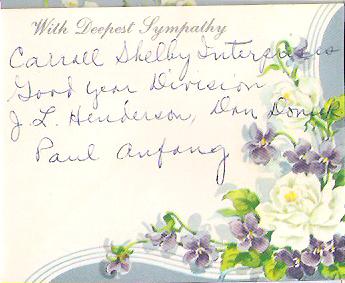 With Deepest Sympathy
Carroll Shelby Interprises
Good Year Division
J. L. Henderson, Dan
Paul Anfang